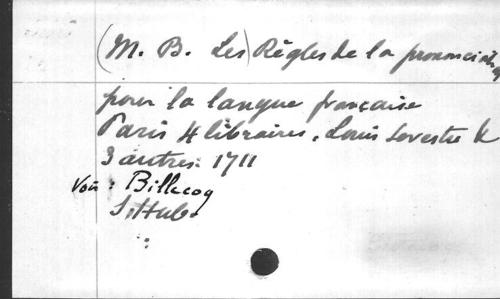 (M. B. Les) Règles de la prononciation
pour la langue française
Paris 4 libraires. Louis Sevestre &
3 autres. 1711
Voir : Billecoq
S. Hub.